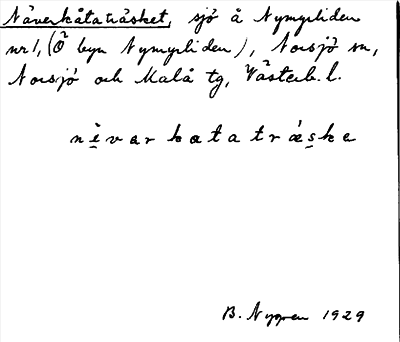 Näverkåtaträsket, sjö å Nymyrliden
nr 1, (Ö byn Nymyrliden), Norsjö sn,
Norsjö och Malå tg, Västerb. l.
nèvarkatatrǽske
B. Nygren 1929